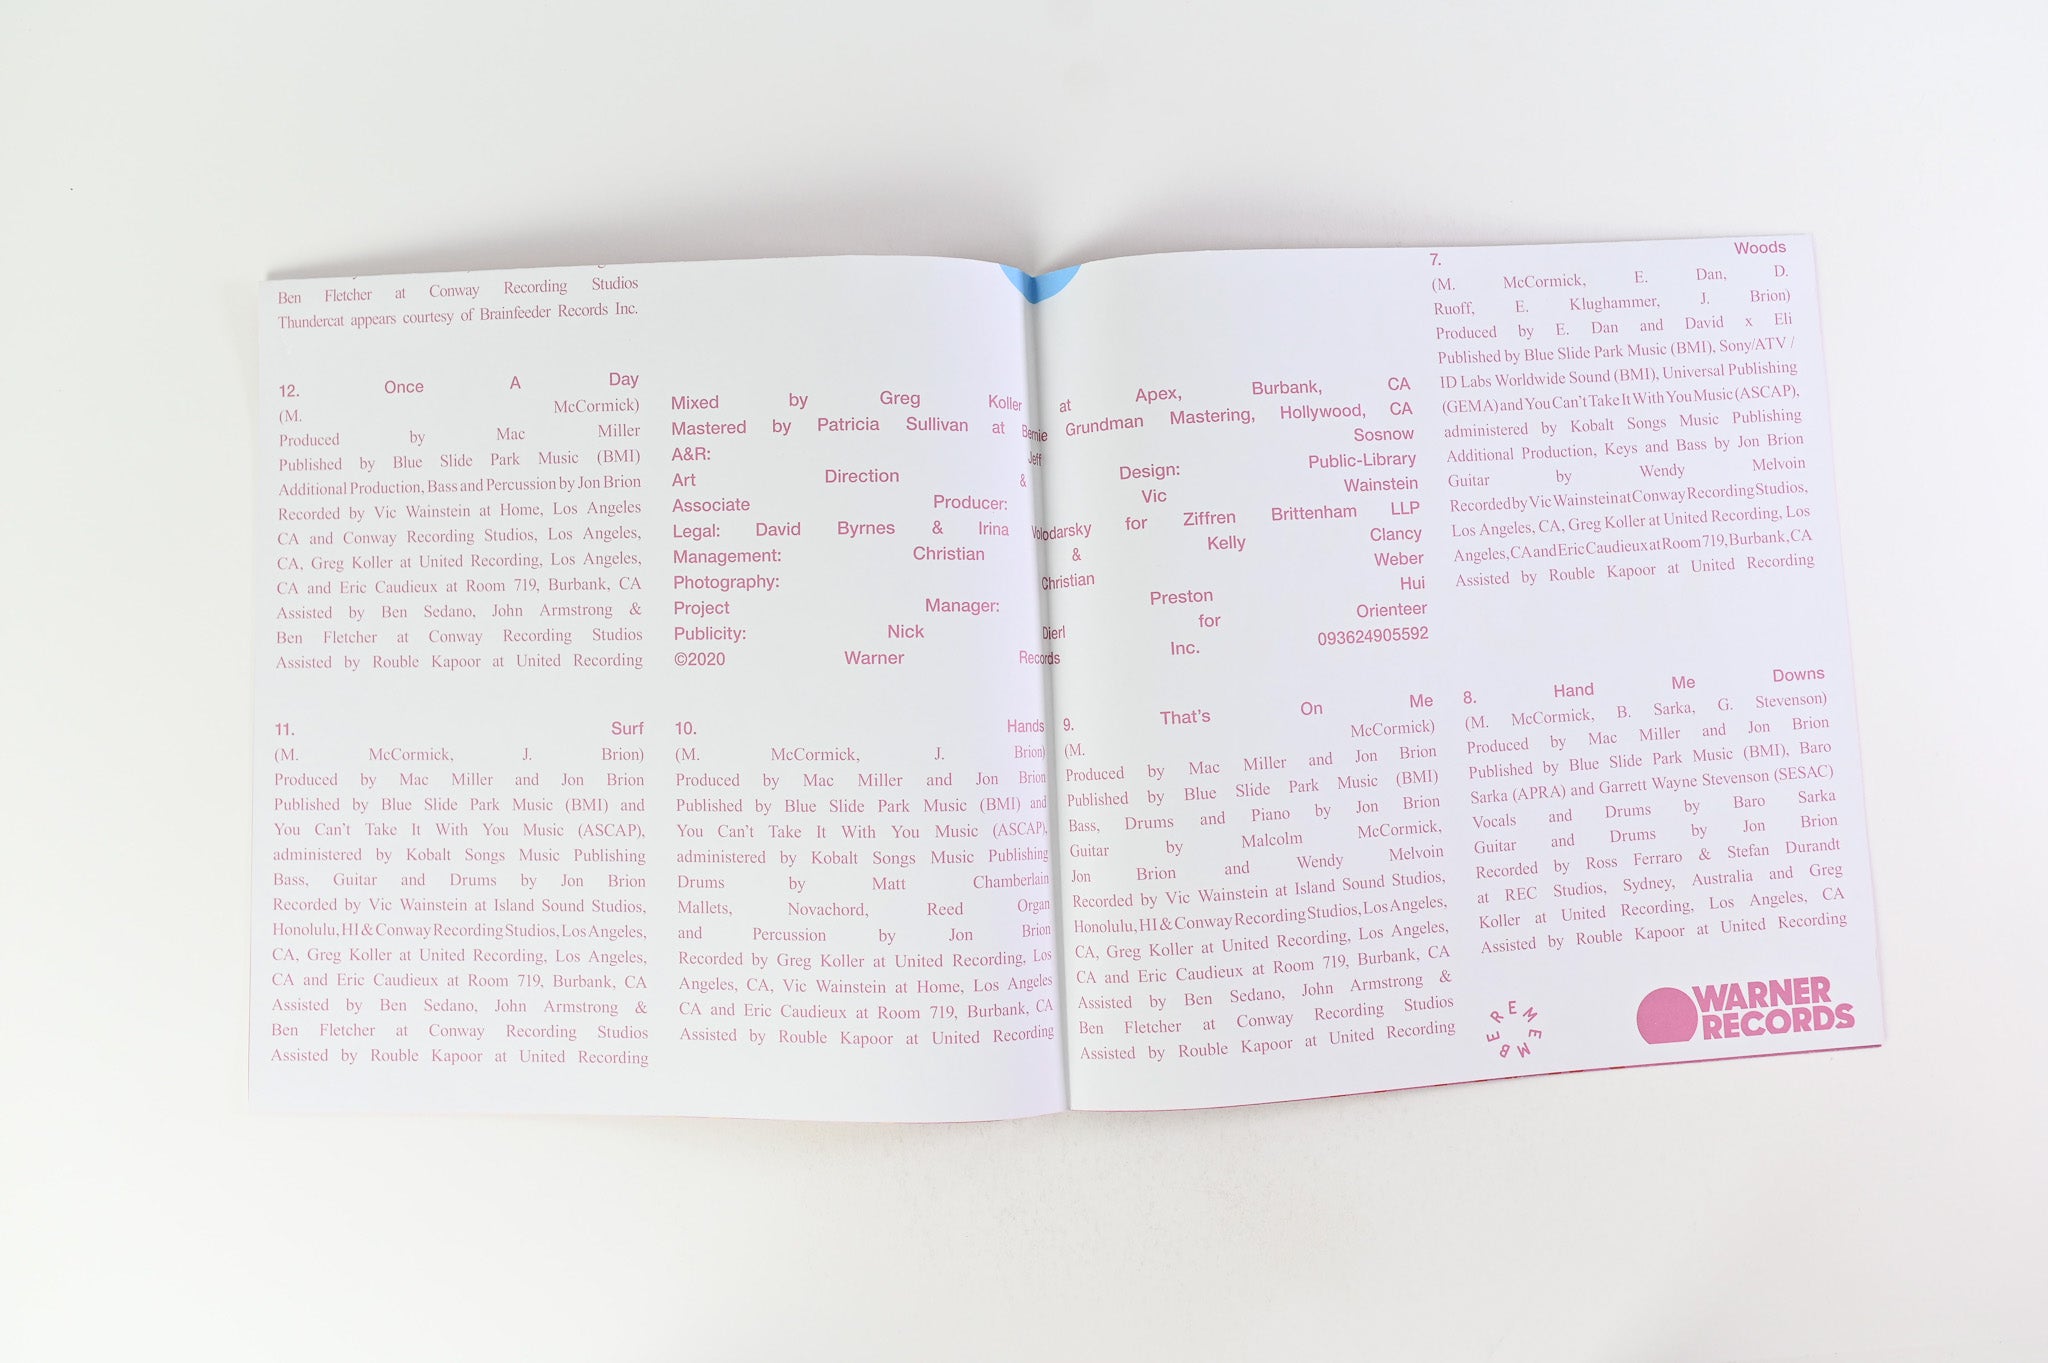 Ben Fletcher at Conway Recording Studios
Thundercat appears courtesy of Brainfeeder Records Inc.
12. Once A Day
(M. McCormick)
Produced by Mac Miller
Published by Blue Slide Park Music (BMI)
Additional Production, Bass and Percussion by Jon Brion
Recorded by Vic Wainstein at Home, Los Angeles
CA and Conway Recording Studios, Los Angeles,
CA, Greg Koller at United Recording, Los Angeles,
CA and Eric Caudieux at Room 719, Burbank, CA
Assisted by Ben Sedano, John Armstrong &
Ben Fletcher at Conway Recording Studios
Assisted by Rouble Kapoor at United Recording
Mixed by Greg Koller at Apex, Burbank, CA
Mastered by Patricia Sullivan at Bernie Grundman Mastering, Hollywood, CA
A&R: Jeff Sosnow
Art Direction & Design: Public-Library
Associate Producer: Vic Wainstein
Legal: David Byrnes & Irina Volodarsky for Ziffren Brittenham LLP
Management: Christian & Kelly Clancy
Photography: Christian Weber
Project Manager: Preston Hui
Publicity: Nick Dierl for Orienteer
©2020 Warner Records Inc. 093624905592
7. Woods
(M. McCormick, E. Dan, D.
Ruoff, E. Klughammer, J. Brion)
Produced by E. Dan and David x Eli
Published by Blue Slide Park Music (BMI), Sony/ATV /
ID Labs Worldwide Sound (BMI), Universal Publishing
(GEMA) and You Can't Take It With You Music (ASCAP),
administered by Kobalt Songs Music Publishing
Additional Production, Keys and Bass by Jon Brion
Guitar by Wendy Melvoin
Recorded by Vic Wainstein at Conway Recording Studios,
Los Angeles, CA, Greg Koller at United Recording, Los
Angeles, CA and Eric Caudieux at Room 719, Burbank, CA
Assisted by Rouble Kapoor at United Recording
11. Surf
(M. McCormick, J. Brion)
Produced by Mac Miller and Jon Brion
Published by Blue Slide Park Music (BMI) and
You Can't Take It With You Music (ASCAP),
administered by Kobalt Songs Music Publishing
Bass, Guitar and Drums by Jon Brion
Recorded by Vic Wainstein at Island Sound Studios,
Honolulu, HI & Conway Recording Studios, Los Angeles,
CA, Greg Koller at United Recording, Los Angeles,
CA and Eric Caudieux at Room 719, Burbank, CA
Assisted by Ben Sedano, John Armstrong &
Ben Fletcher at Conway Recording Studios
Assisted by Rouble Kapoor at United Recording
10. Hands
(M. McCormick, J. Brion)
Produced by Mac Miller and Jon Brion
Published by Blue Slide Park Music (BMI) and
You Can't Take It With You Music (ASCAP),
administered by Kobalt Songs Music Publishing
Drums by Matt Chamberlain
Mallets, Novachord, Reed Organ
and Percussion by Jon Brion
Recorded by Greg Koller at United Recording, Los
Angeles, CA, Vic Wainstein at Home, Los Angeles
CA and Eric Caudieux at Room 719, Burbank, CA
Assisted by Rouble Kapoor at United Recording
9. That's On Me
(M. McCormick)
Produced by Mac Miller and Jon Brion
Published by Blue Slide Park Music (BMI)
Bass, Drums and Piano by Jon Brion
Guitar by Malcolm McCormick,
Jon Brion and Wendy Melvoin
Recorded by Vic Wainstein at Island Sound Studios,
Honolulu, HI & Conway Recording Studios, Los Angeles,
CA, Greg Koller at United Recording, Los Angeles,
CA and Eric Caudieux at Room 719, Burbank, CA
Assisted by Ben Sedano, John Armstrong &
Ben Fletcher at Conway Recording Studios
Assisted by Rouble Kapoor at United Recording
8. Hand Me Downs
(M. McCormick, B. Sarka, G. Stevenson)
Produced by Mac Miller and Jon Brion
Published by Blue Slide Park Music (BMI), Baro
Sarka (APRA) and Garrett Wayne Stevenson (SESAC)
Vocals and Drums by Baro Sarka
Guitar and Drums by Jon Brion
Recorded by Ross Ferraro & Stefan Durandt
at REC Studios, Sydney, Australia and Greg
Koller at United Recording, Los Angeles, CA
Assisted by Rouble Kapoor at United Recording
REMEMBER
WARNER
RECORDS